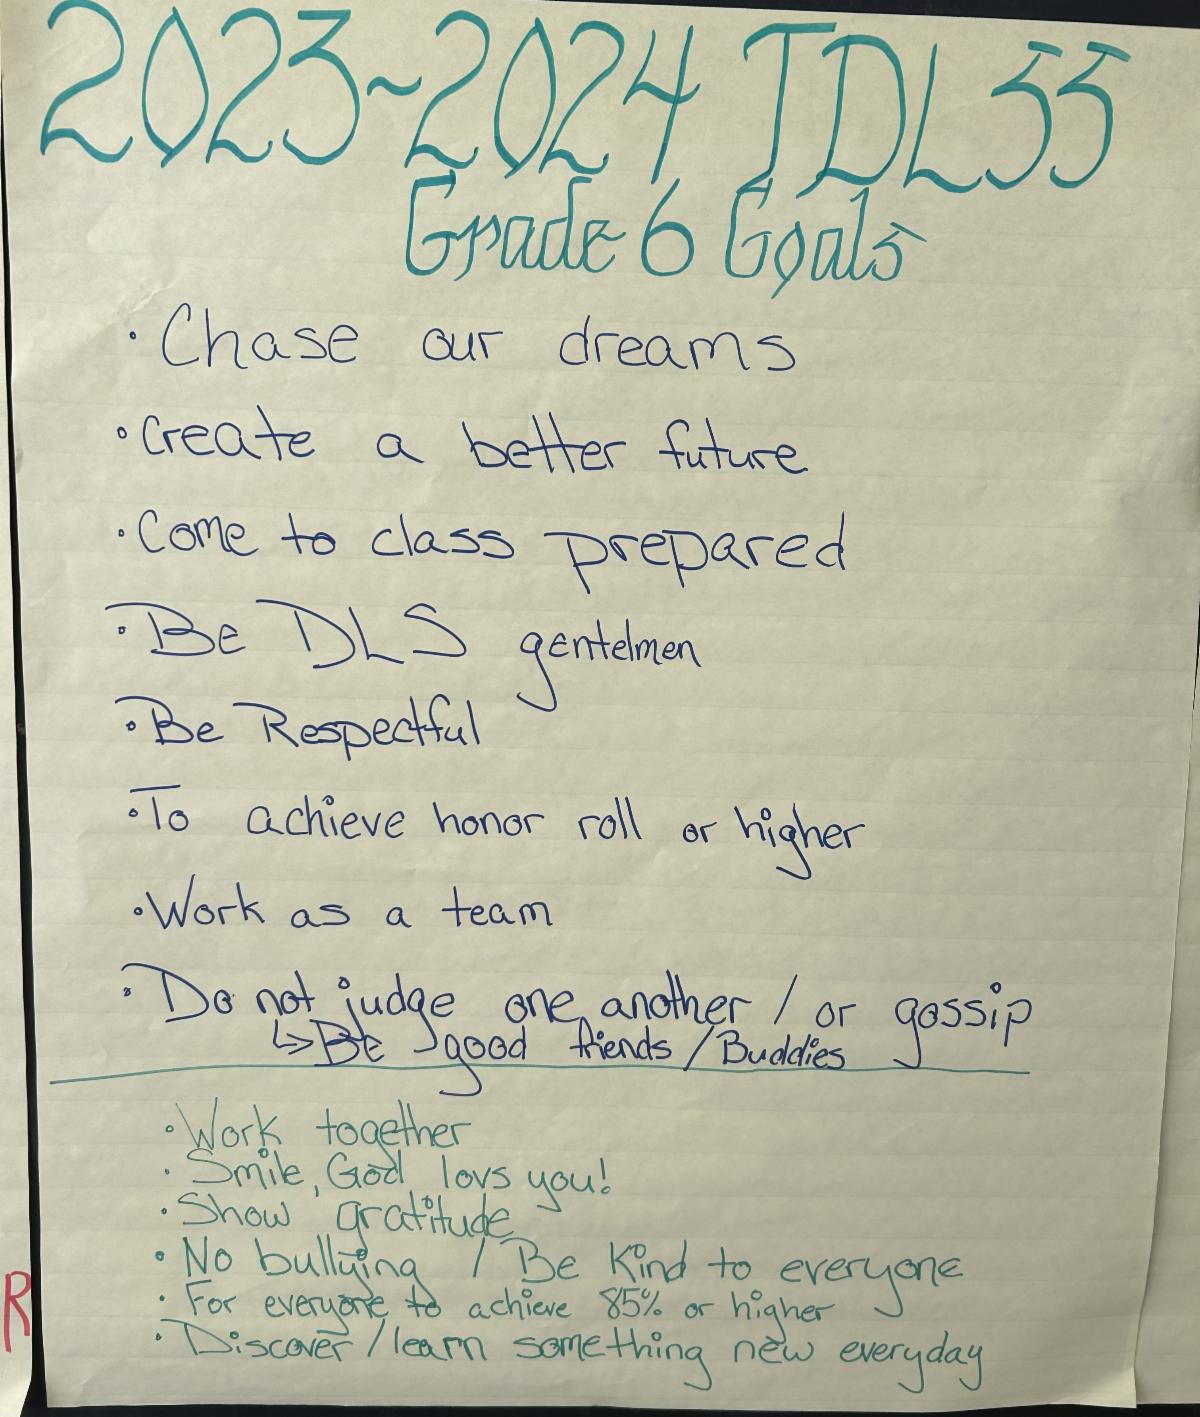 2023~2024 TDLSS
Grade 6 Goals
• Chase our dreams
• Create a better future
• Come to class prepared
• Be DLS gentelmen
• Be Respectful
• To achieve honor roll or higher
• Work as a team
• Do not judge one another / or gossip
↳ Be good friends / Buddies
• Work together
• Smile, God lovs you!
• Show gratitude
• No bullying / Be Kind to everyone
• For everyone to achieve 85% or higher
• Discover / learn something new everyday
R